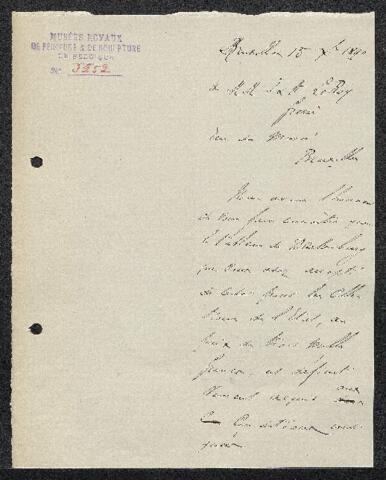 MUSÉES ROYAUX
DE PEINTURE & DE SCULPTURE
DE BELGIQUE
N° 3252
Bruxelles 15 1890
à M.M. J & A Le Roy
frères
Bruxelles
Nous avons l'honneur
de vous faire connaître que
le tableau de
que vous avez accepté
de céder pour les Collec
tions de l'Etat, au
prix de trois mille
francs, est définiti
vement acquis aux
conditions indi
quées